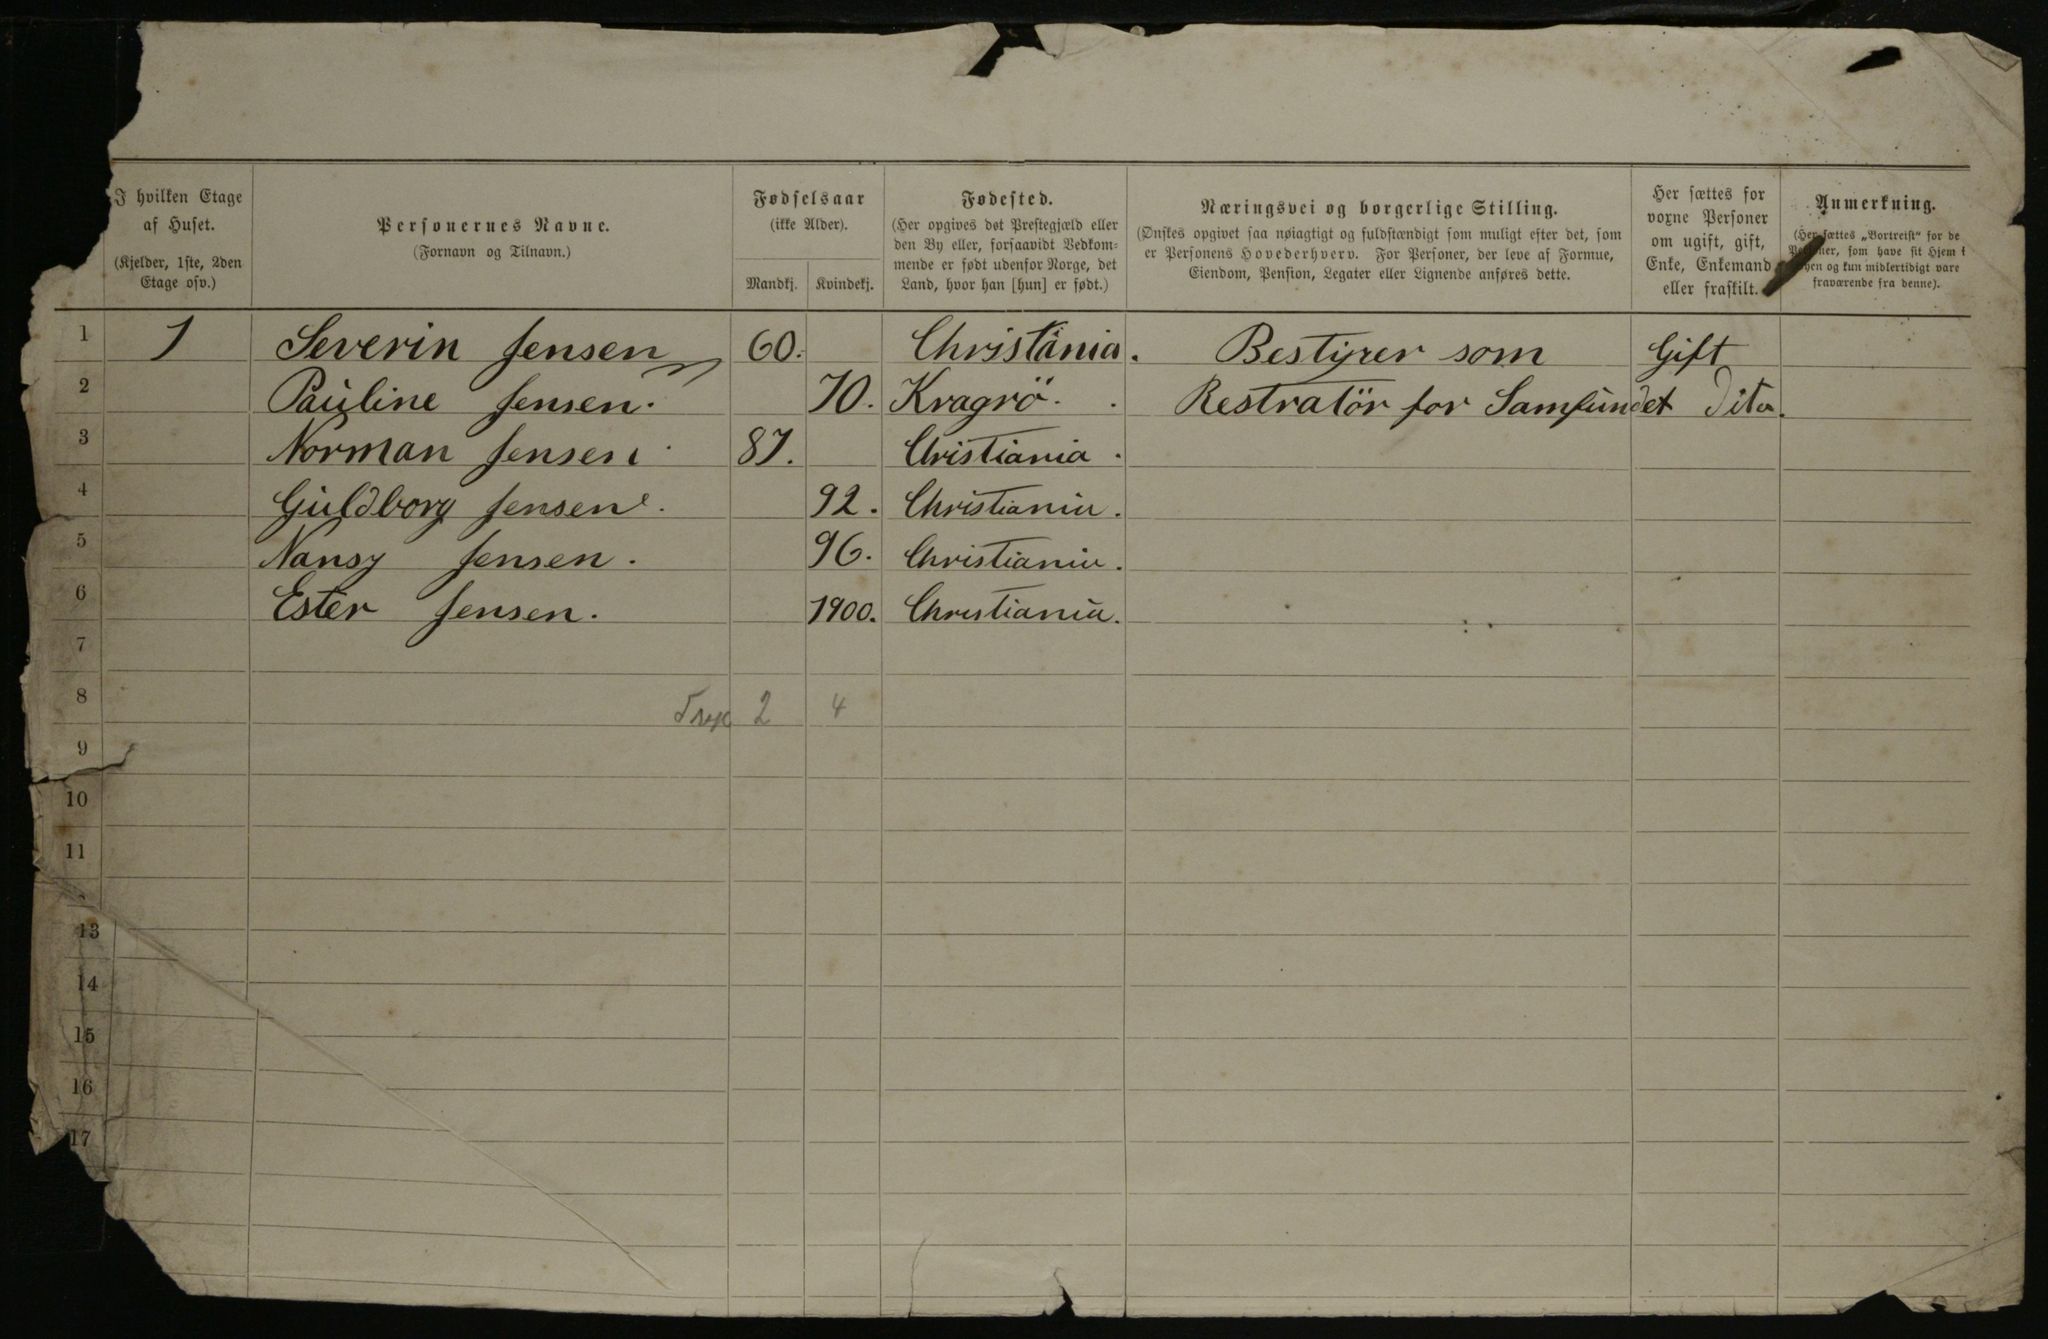 I hvilken Etage
af Huset.
(Kjelder, 1ste, 2den
Etage osv.)
Personernes Navne.
(Fornavn og Tilnavn.)
Fødselsaar
(ikke Alder).
Mandkj.
Kvindekj.
Fødested.
(Her opgives det Prestegjæld eller
den By eller, forsaavidt Vedkom-
mende er født udenfor Norge, det
Land, hvor han [hun] er født.)
Næringsvei og borgerlige Stilling.
(Ønskes opgivet saa nøiagtigt og fuldstændigt som muligt efter det, som
er Personens Hovederhverv. For Personer, der leve af Formue,
Eiendom, Pension, Legater eller Lignende anføres dette.
Her sættes for
voxne Personer
om ugift, gift,
Enke, Enkemand
eller fraskilt.
Anmerkning.
(Her sættes „Bortreist“ for de
Personer, som have sit Hjem i
Byen og kun midlertidigt vare
fraværende fra denne).
1 1 Severin Jensen 60. Christania. Bestyrer som Gift
2 Pauline Jensen. 70. Kragrö. Restratör for Samfundet Dito.
3 Norman Jensen 87. Christiania.
4 Guldborg Jensen. 92. Christiania.
5 Nansy Jensen. 96. Christiania.
6 Ester Jensen. 1900. Christiania.
7
8 2 4
9
10
11
13
14
15
16
17